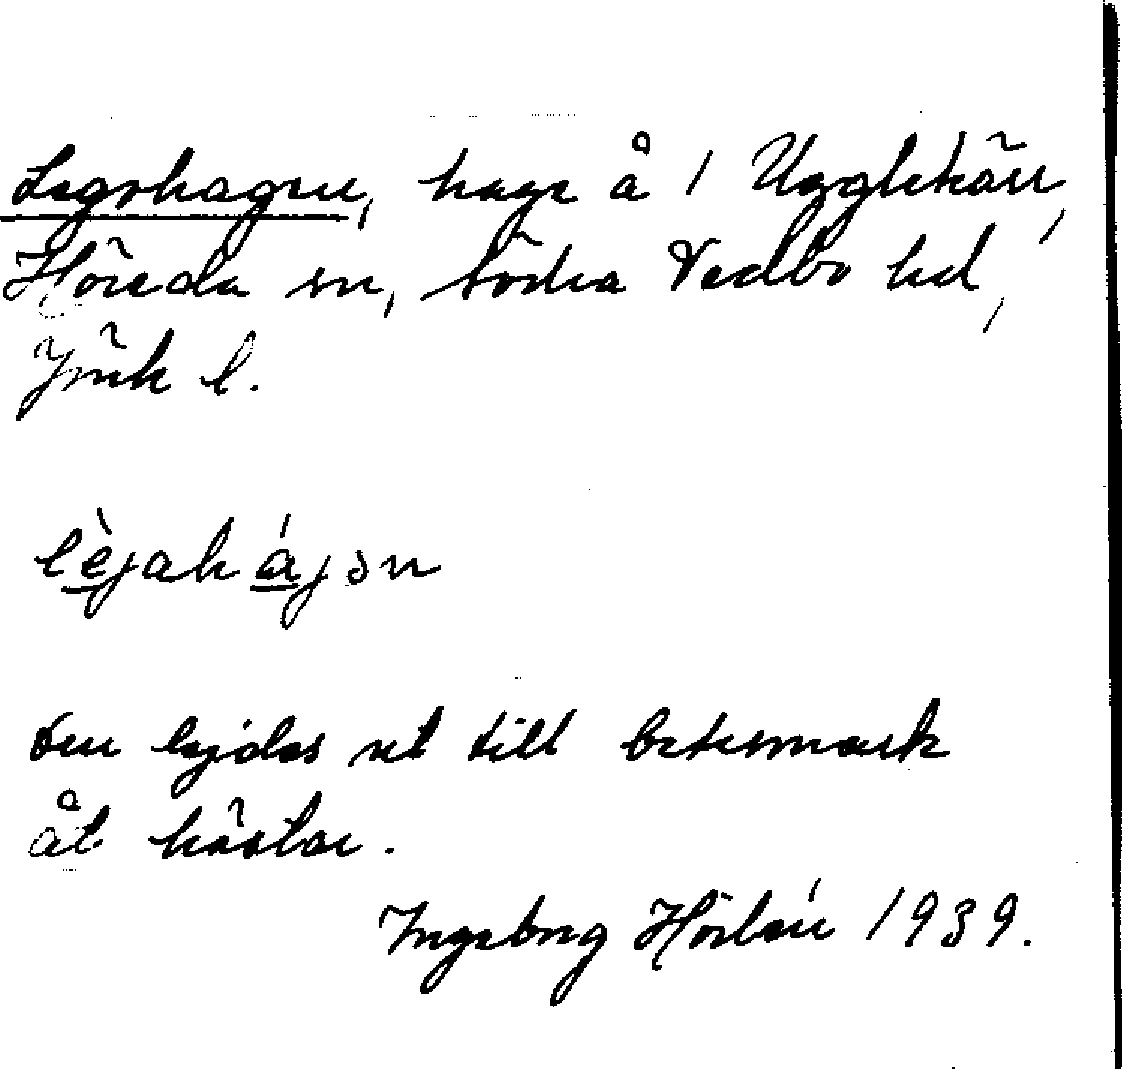 Legohagen, hage å 1 Ugglekärr,
Höreda sn, Södra Vedbo hd,
Jönk l.
lèjahájən
Den lejdes ut till betesmark
åt hästar.
Ingeborg Hörlén 1939.